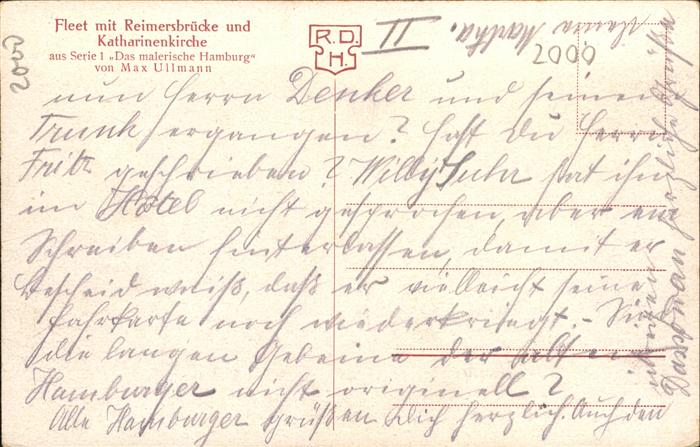 Fleet mit Reimersbrücke und
Katharinenkirche
aus Serie 1 „Das malerische Hamburg“
von Max Ullmann
R. D.
H.
II
2000
2000
nun Herrn Denker und seinem
Trunk ergangen? Hast Du Herrn
Fritz geschrieben? Willy Suhr hat ihn
im Hotel nicht gesprochen, aber ein
Schreiben hinterlassen, damit er
Bescheid weiß, daß er vielleicht seine
Fahrkarte noch wiederkriegt. - Sind
die langen Gebeine der alten
Hamburger nicht originell?
Alle Hamburger grüßen Dich herzlich. Auch den
herzliche Grüße
Deine Martha.